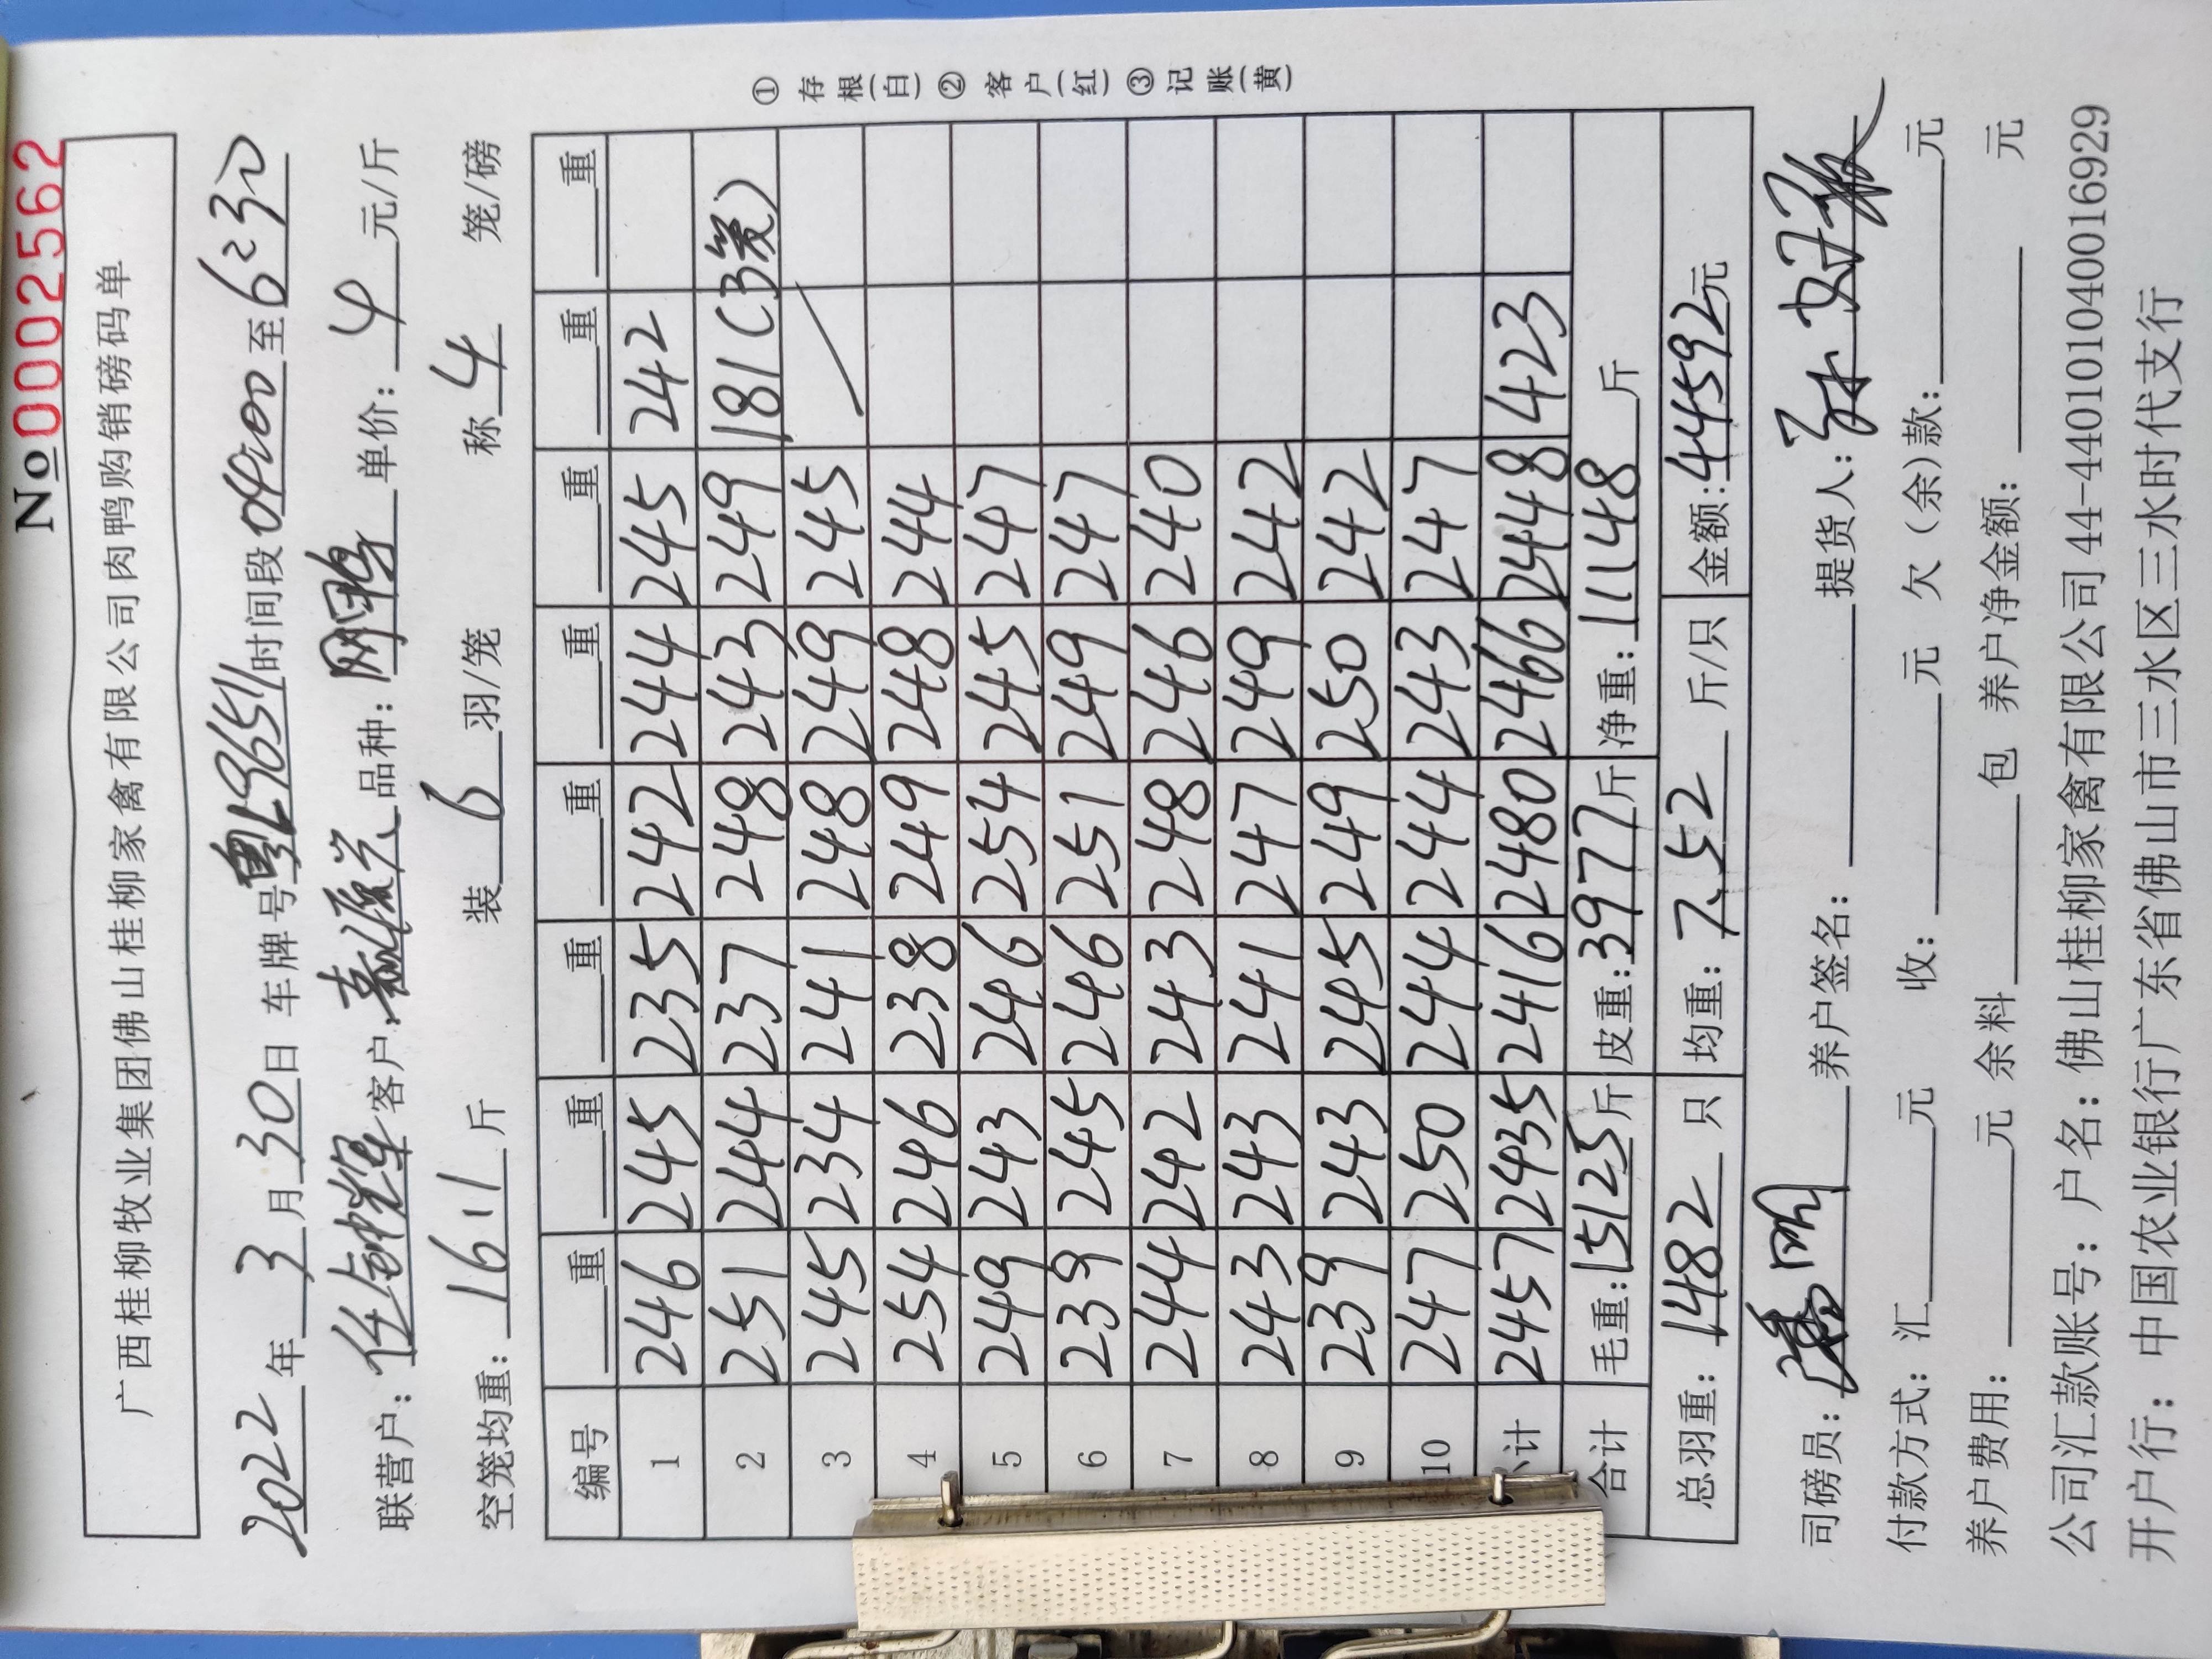 No 0002562
广西桂柳牧业集团佛山桂柳家禽有限公司肉鸭购销磅码单
2022年3月30日 车牌号粤L96511时间段04:00至6:30
联营户:任钟辉 客户: 品种: 单价: 4 元/斤
空笼均重: 16.1 斤 装 6 羽/笼 称 4 笼/磅
编号 重 重 重 重 重 重 重 重
1 246 245 235 242 244 245 242
2 251 244 237 248 243 249 181(3笼)
3 245 234 241 248 249 245
4 254 246 238 249 248 244
5 249 243 246 254 245 247
6 239 245 246 251 249 247
7 244 242 243 248 246 240
8 243 243 241 247 249 242
9 239 243 245 249 250 242
10 247 250 244 244 243 247
计 2457 2435 2416 2480 2466 2448 423
合计 毛重:15125斤 皮重:3977斤 净重:11148斤
总羽重: 1482 只 均重: 7.52 斤/只 金额:44592元
司磅员: 养户签名: 提货人:
付款方式: 汇 元 收: 元 欠(余)款: 元
养户费用: 元 余料 包 养户净金额: 元
公司汇款账号: 户名: 佛山桂柳家禽有限公司 44-440101040016929
开户行: 中国农业银行广东省佛山市三水区三水时代支行
①存根(白)②客户(红)③记账(黄)